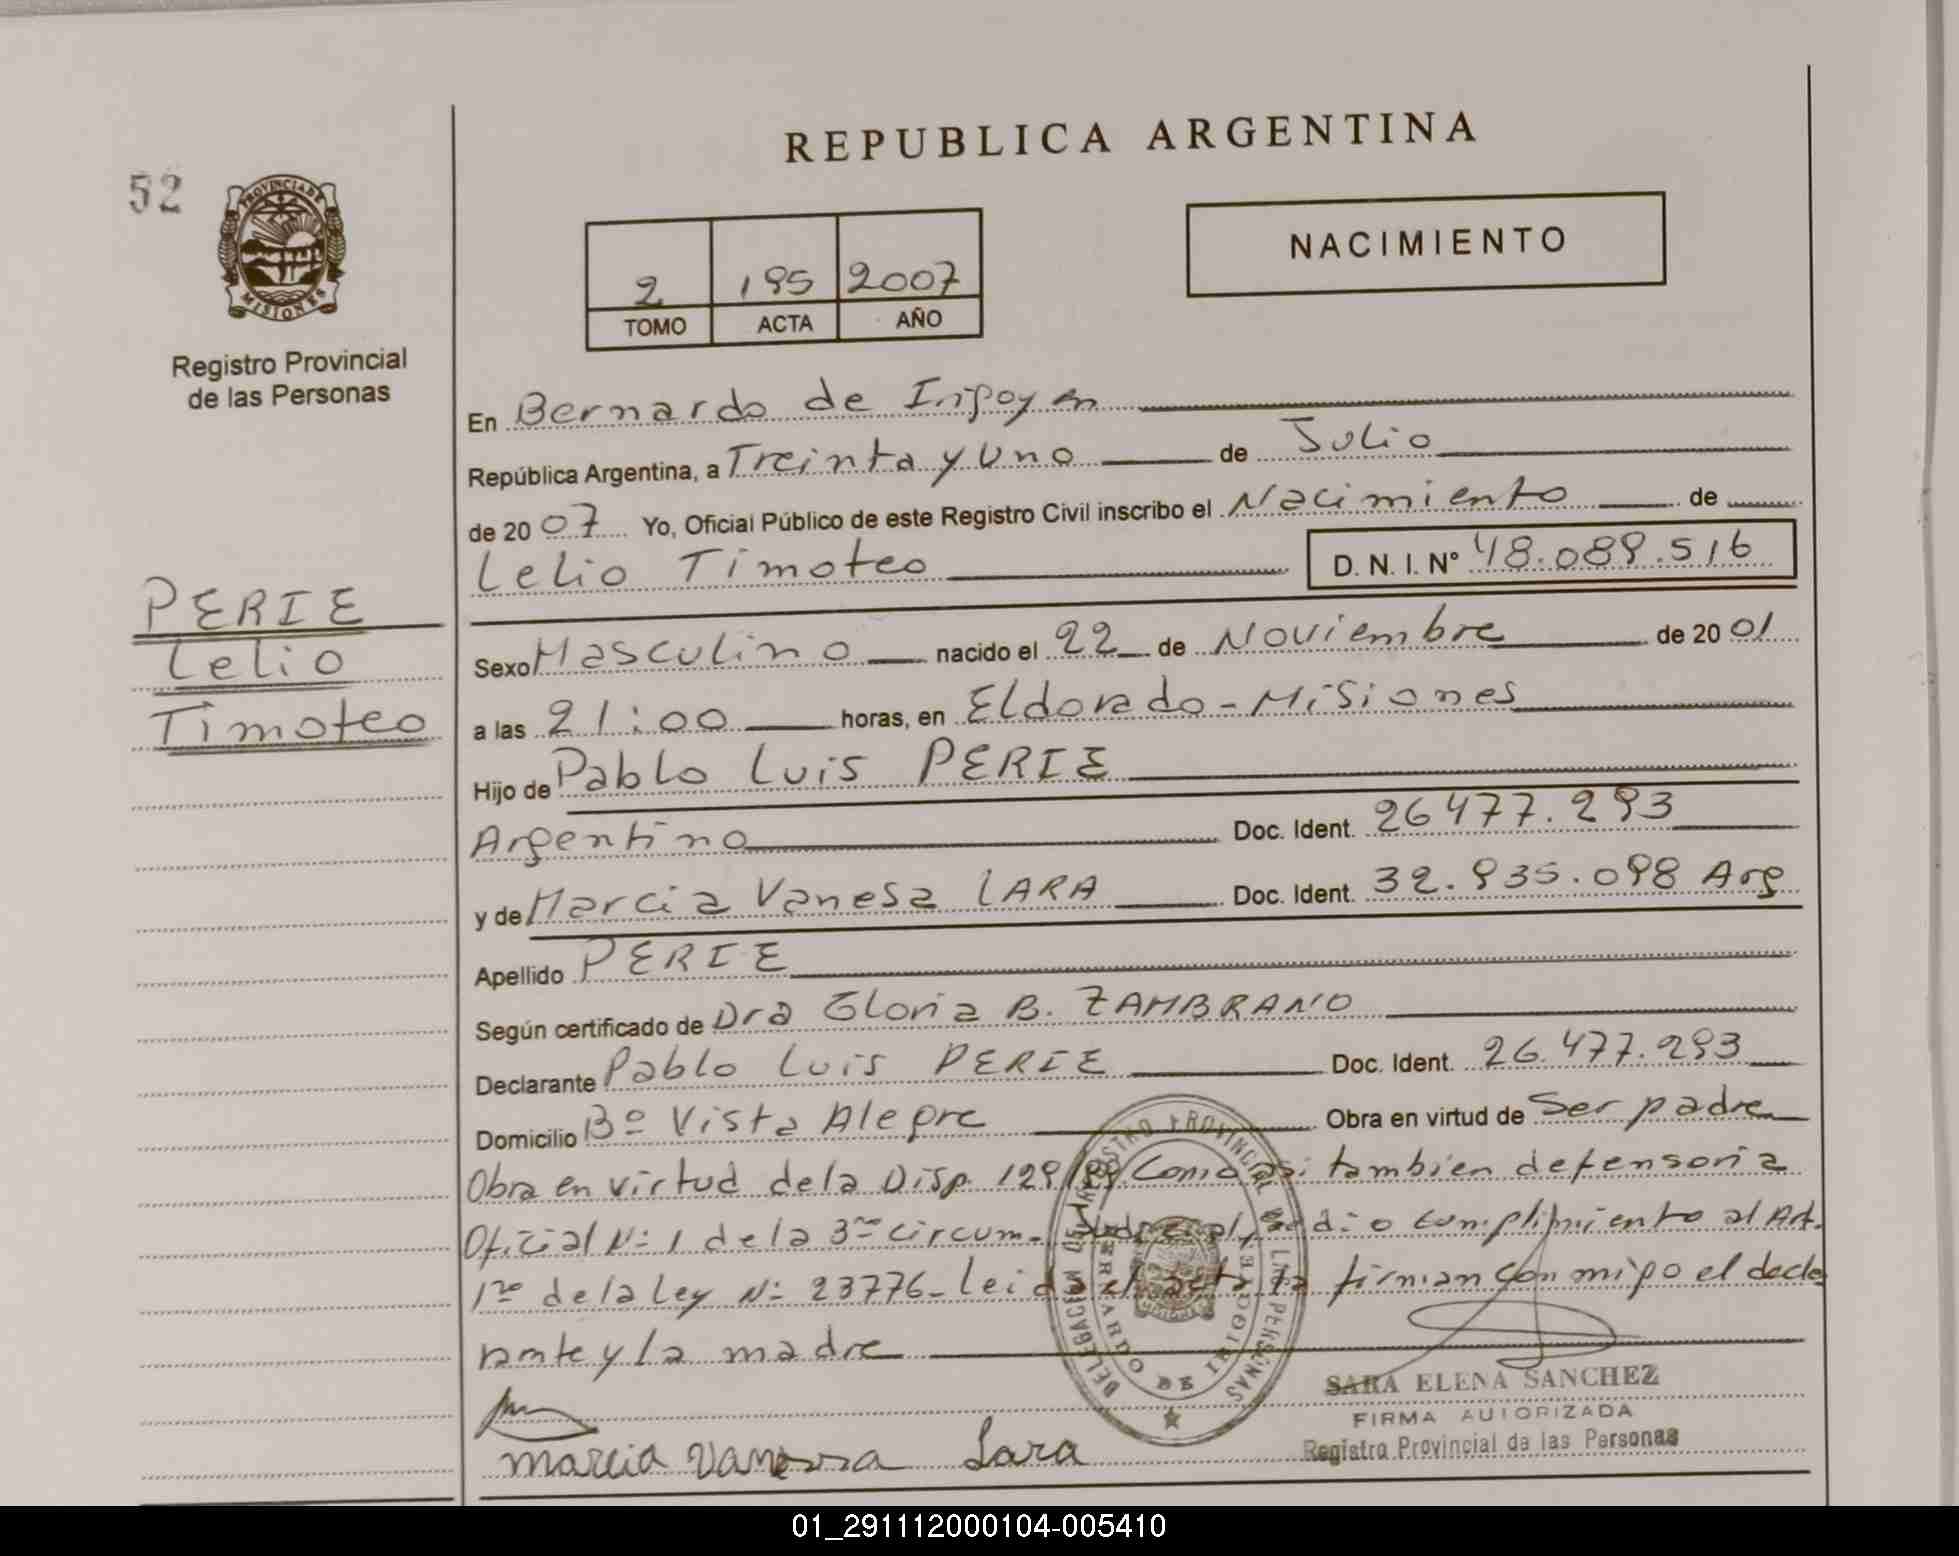 REPUBLICA ARGENTINA
52
PROVINCIA DE
MISIONES
Registro Provincial
de las Personas
NACIMIENTO
2 195 2007
TOMO ACTA AÑO
En Bernardo de Irigoyen
República Argentina, a Treinta y Uno de Julio
de 2007 Yo, Oficial Público de este Registro Civil inscribo el Nacimiento de
Lelio Timoteo D. N. I. Nº 48.089.516
PERIE
Lelio
Timoteo
Sexo Masculino nacido el 22 de Noviembre de 2001
a las 21:00 horas, en Eldorado - Misiones
Hijo de Pablo Luis PERIE
Argentino Doc. Ident. 26477.293
y de Marcia Vanesa LARA Doc. Ident. 32.935.098 Arg
Apellido PERIE
Según certificado de Dra Gloria B. ZAMBRANO
Declarante Pablo Luis PERIE Doc. Ident. 26.477.293
Domicilio Bº Vista Alegre Obra en virtud de Ser padre
Obra en virtud de la Disp. 129/89. Como asi tambien defensoria
Oficial Nº 1 de la 3ra circum. dio cumplimiento al Art.
1ro de la Ley Nº 23776- leida el acta la firman conmigo el decla
rante y la madre
DELEGACION DEL REGISTRO PROVINCIAL DE LAS PERSONAS
BERNARDO DE IRIGOYEN
SARA ELENA SANCHEZ
FIRMA AUTORIZADA
Registro Provincial de las Personas
Marcia Vanessa Lara
01_291112000104-005410